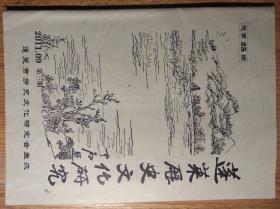 总第 25 期
蓬莱歷史文化研究
2011.09
蓬莱市历史文化研究会主办